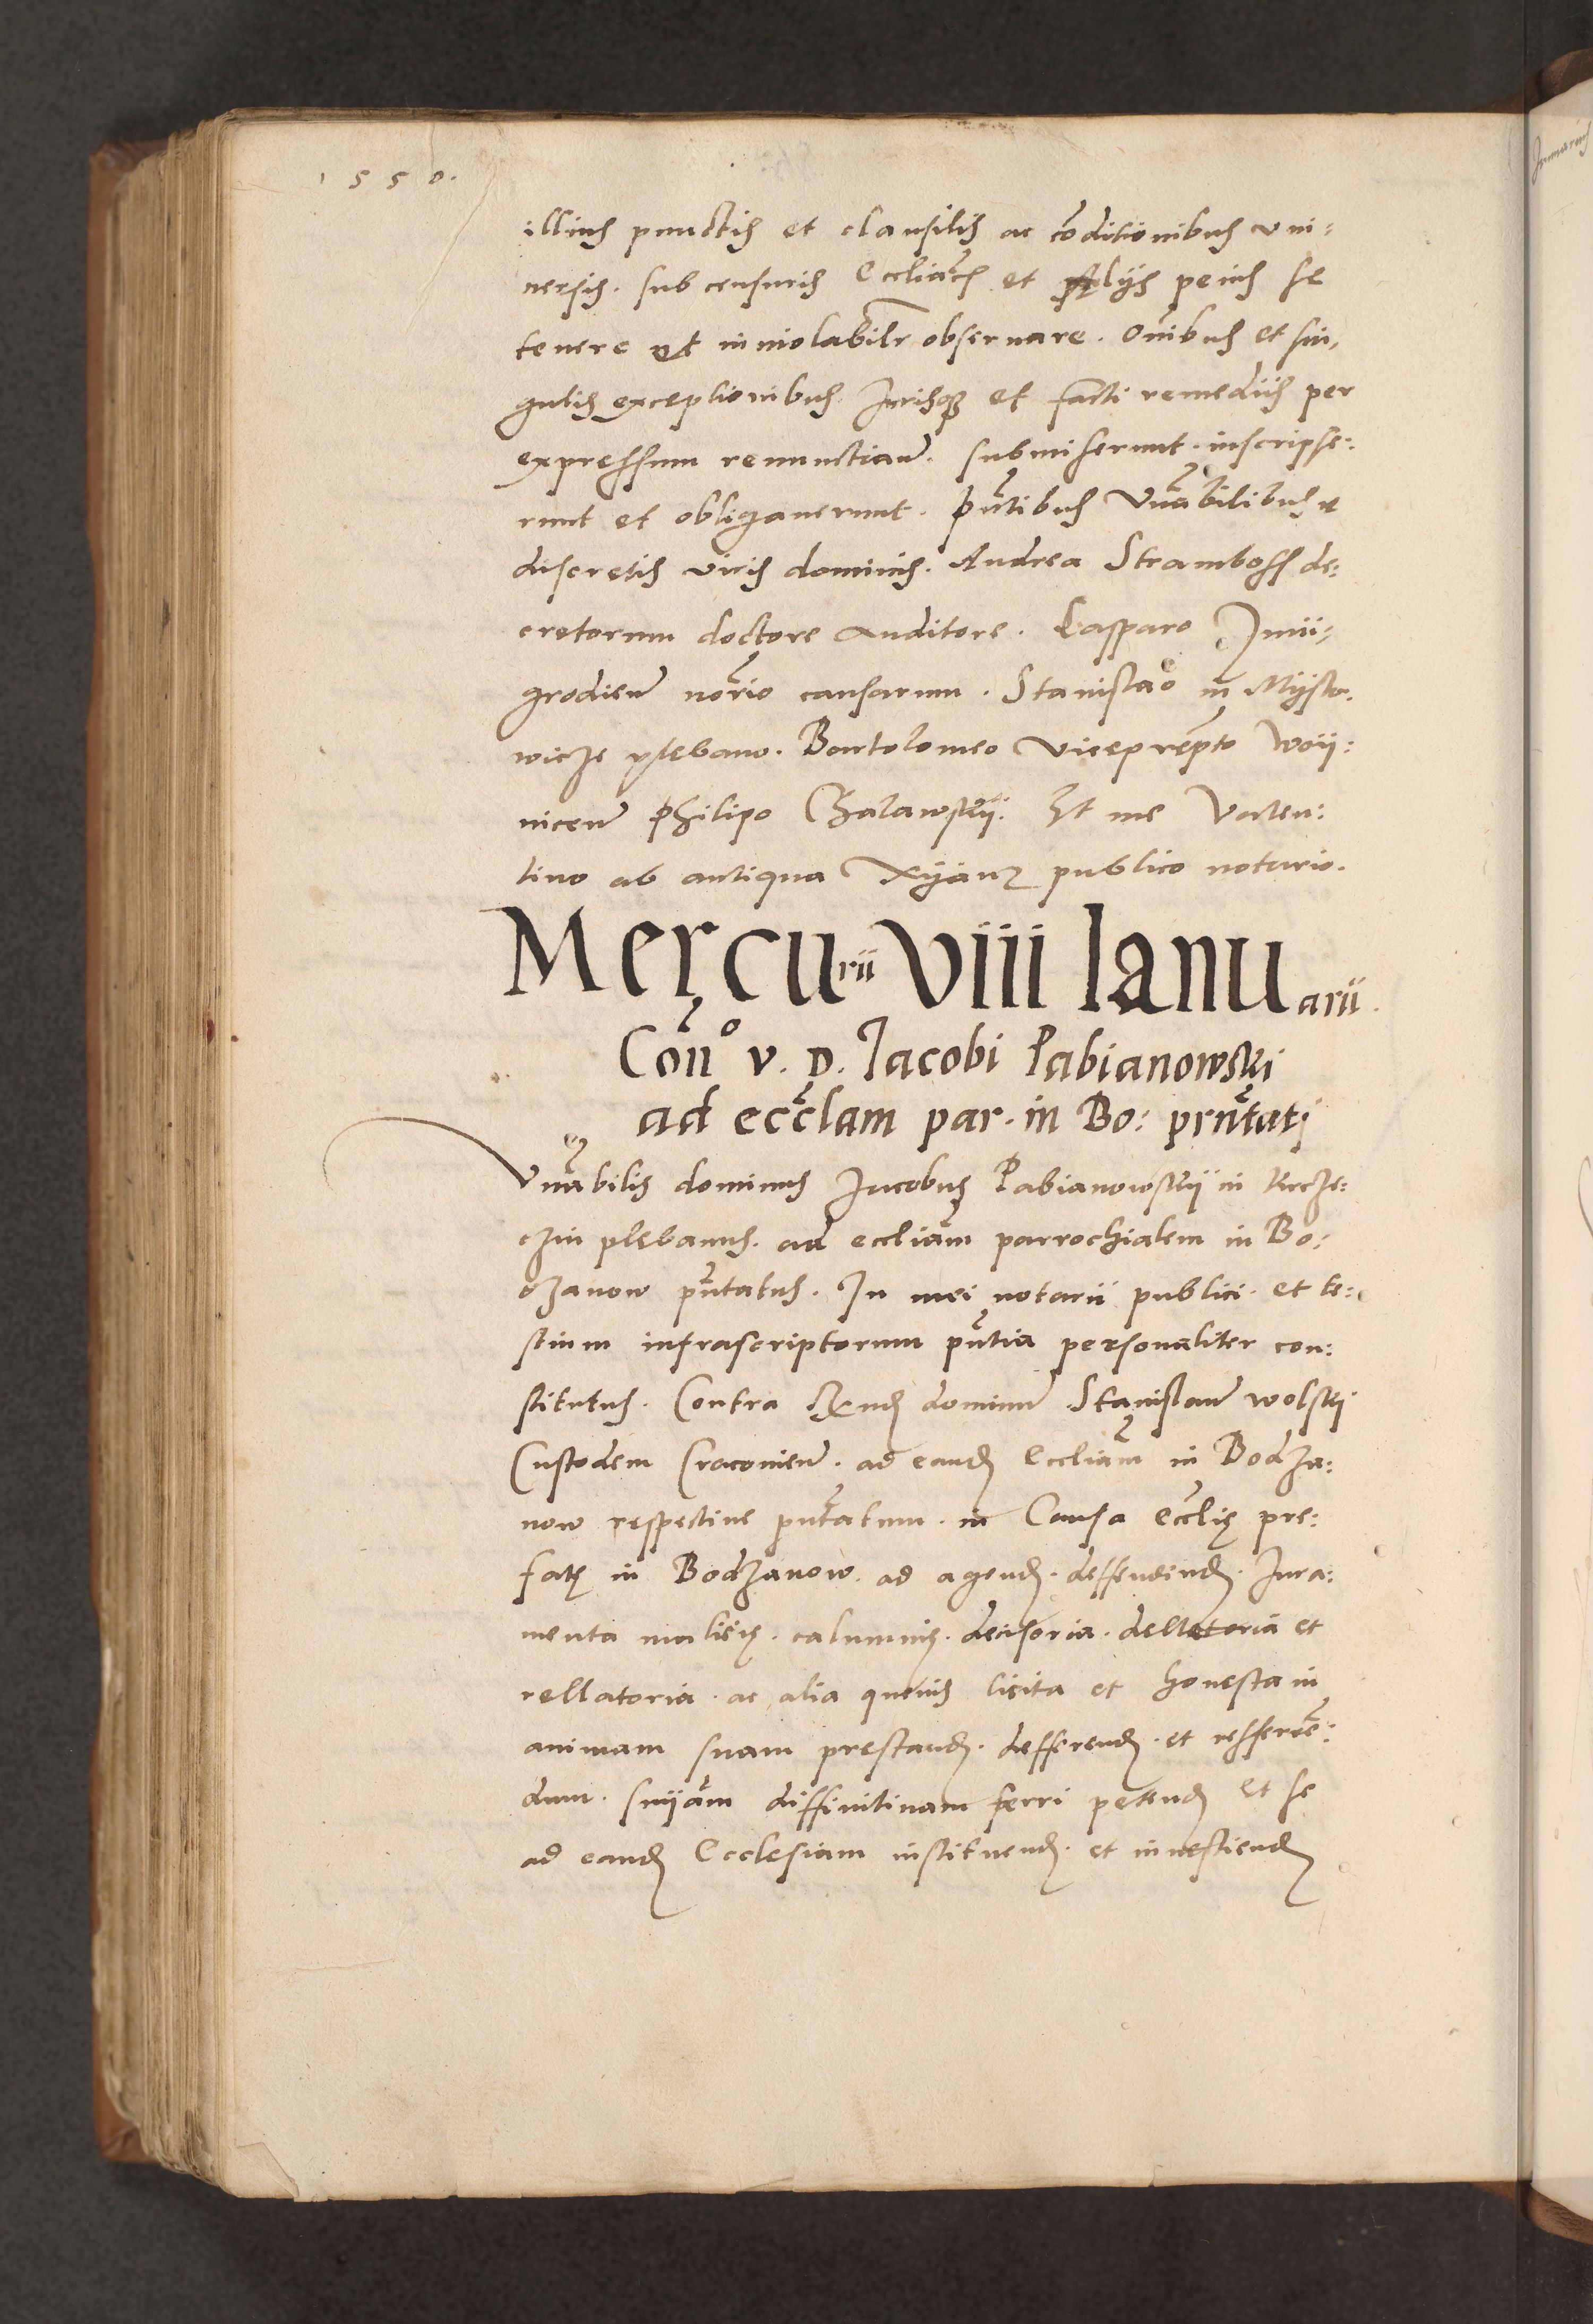 1550.
illius punctis et clausulis ac cõditionibus vni:
uersis. sub censuris Eccliãcis et alijs penis se
tenere et inuiolabilr obseruare. Oĩbus et sin,
gulis exceptionibus Jurisq et facti remedijs per
expressum renunctiañ. submiserunt. inscripse:
runt et obligauerunt. Pñtibus Vnãbilibus et
discretis viris dominis. Andrea Stramboss de:
cretorum doctore Auditore. Casparo Zmii,
grodieñ norio causarum. Stanislao in Mysla,
wicze plebano. Bartolomeo Vicepreṗto Woij:
niceñ Philipo Chalawskij. Et me Valen:
tino ab antiqua publico notario.
Mercurii VIII Ianuarii.
Coñº v. D. Jacobi Pabianowski
ad ecclam par. in Bo: pñtati
Vnãbilis dominus Jacobus Pabianowskij in Krcze:
czin plebanus. ad eccliam parrochialem in Bo:
dzanow pñtatus. In mei notarii publici. et te:
stium infrascriptorum pñtia personaliter con:
stitutus. Contra Rnd dominũ Stanislaũ wolski
Custodem Cracouieñ. ad eand Eccliam in Bodza:
now respectiue pñtatum. in Causa Ecclie pre:
fate in Bodzanow. ad agend. deffendend. Jura:
menta malicie. calumnie. decisoria. dellatoria et
rellatoria. ac alia queuis licita et honesta in
animam suam prestand. defferend. et refferẽ:
dum. snijam diffinitiuam ferri petend et se
ad eand Ecclesiam instituend. et inuestiend